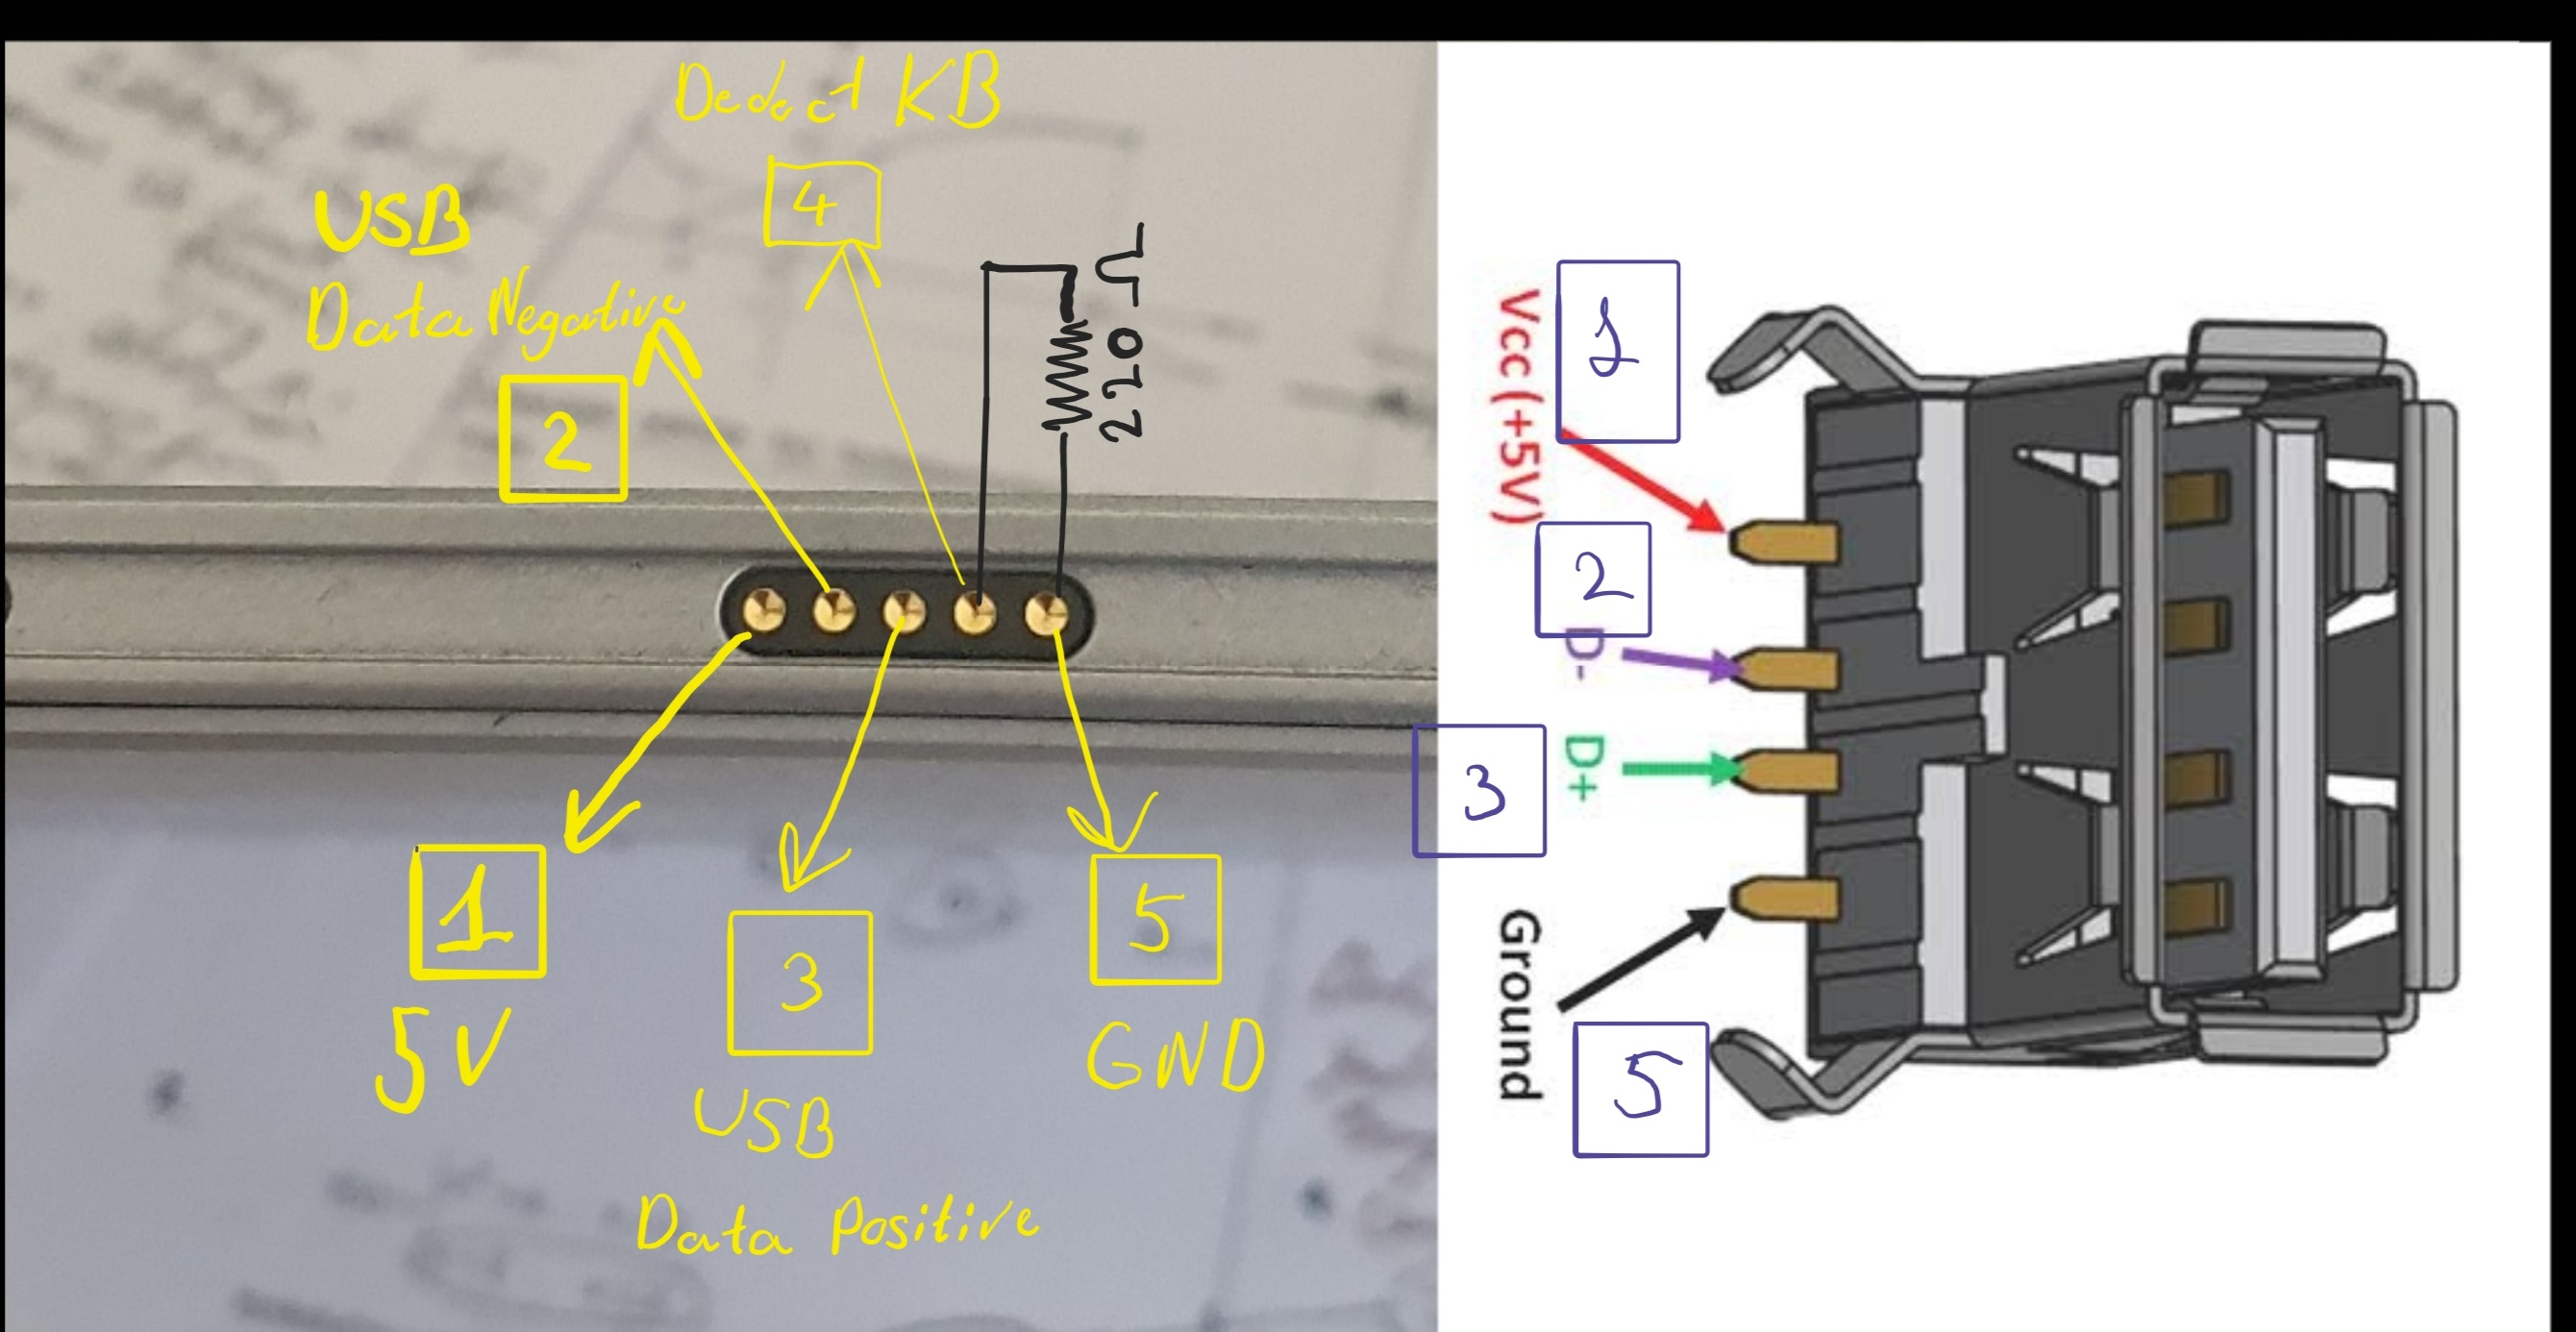 Dedect KB
4
USB
Data Negative
2
220 Ω
1
5V
3
USB
Data Positive
5
GND
1
Vcc (+5V)
2
D-
D+
3
Ground
5